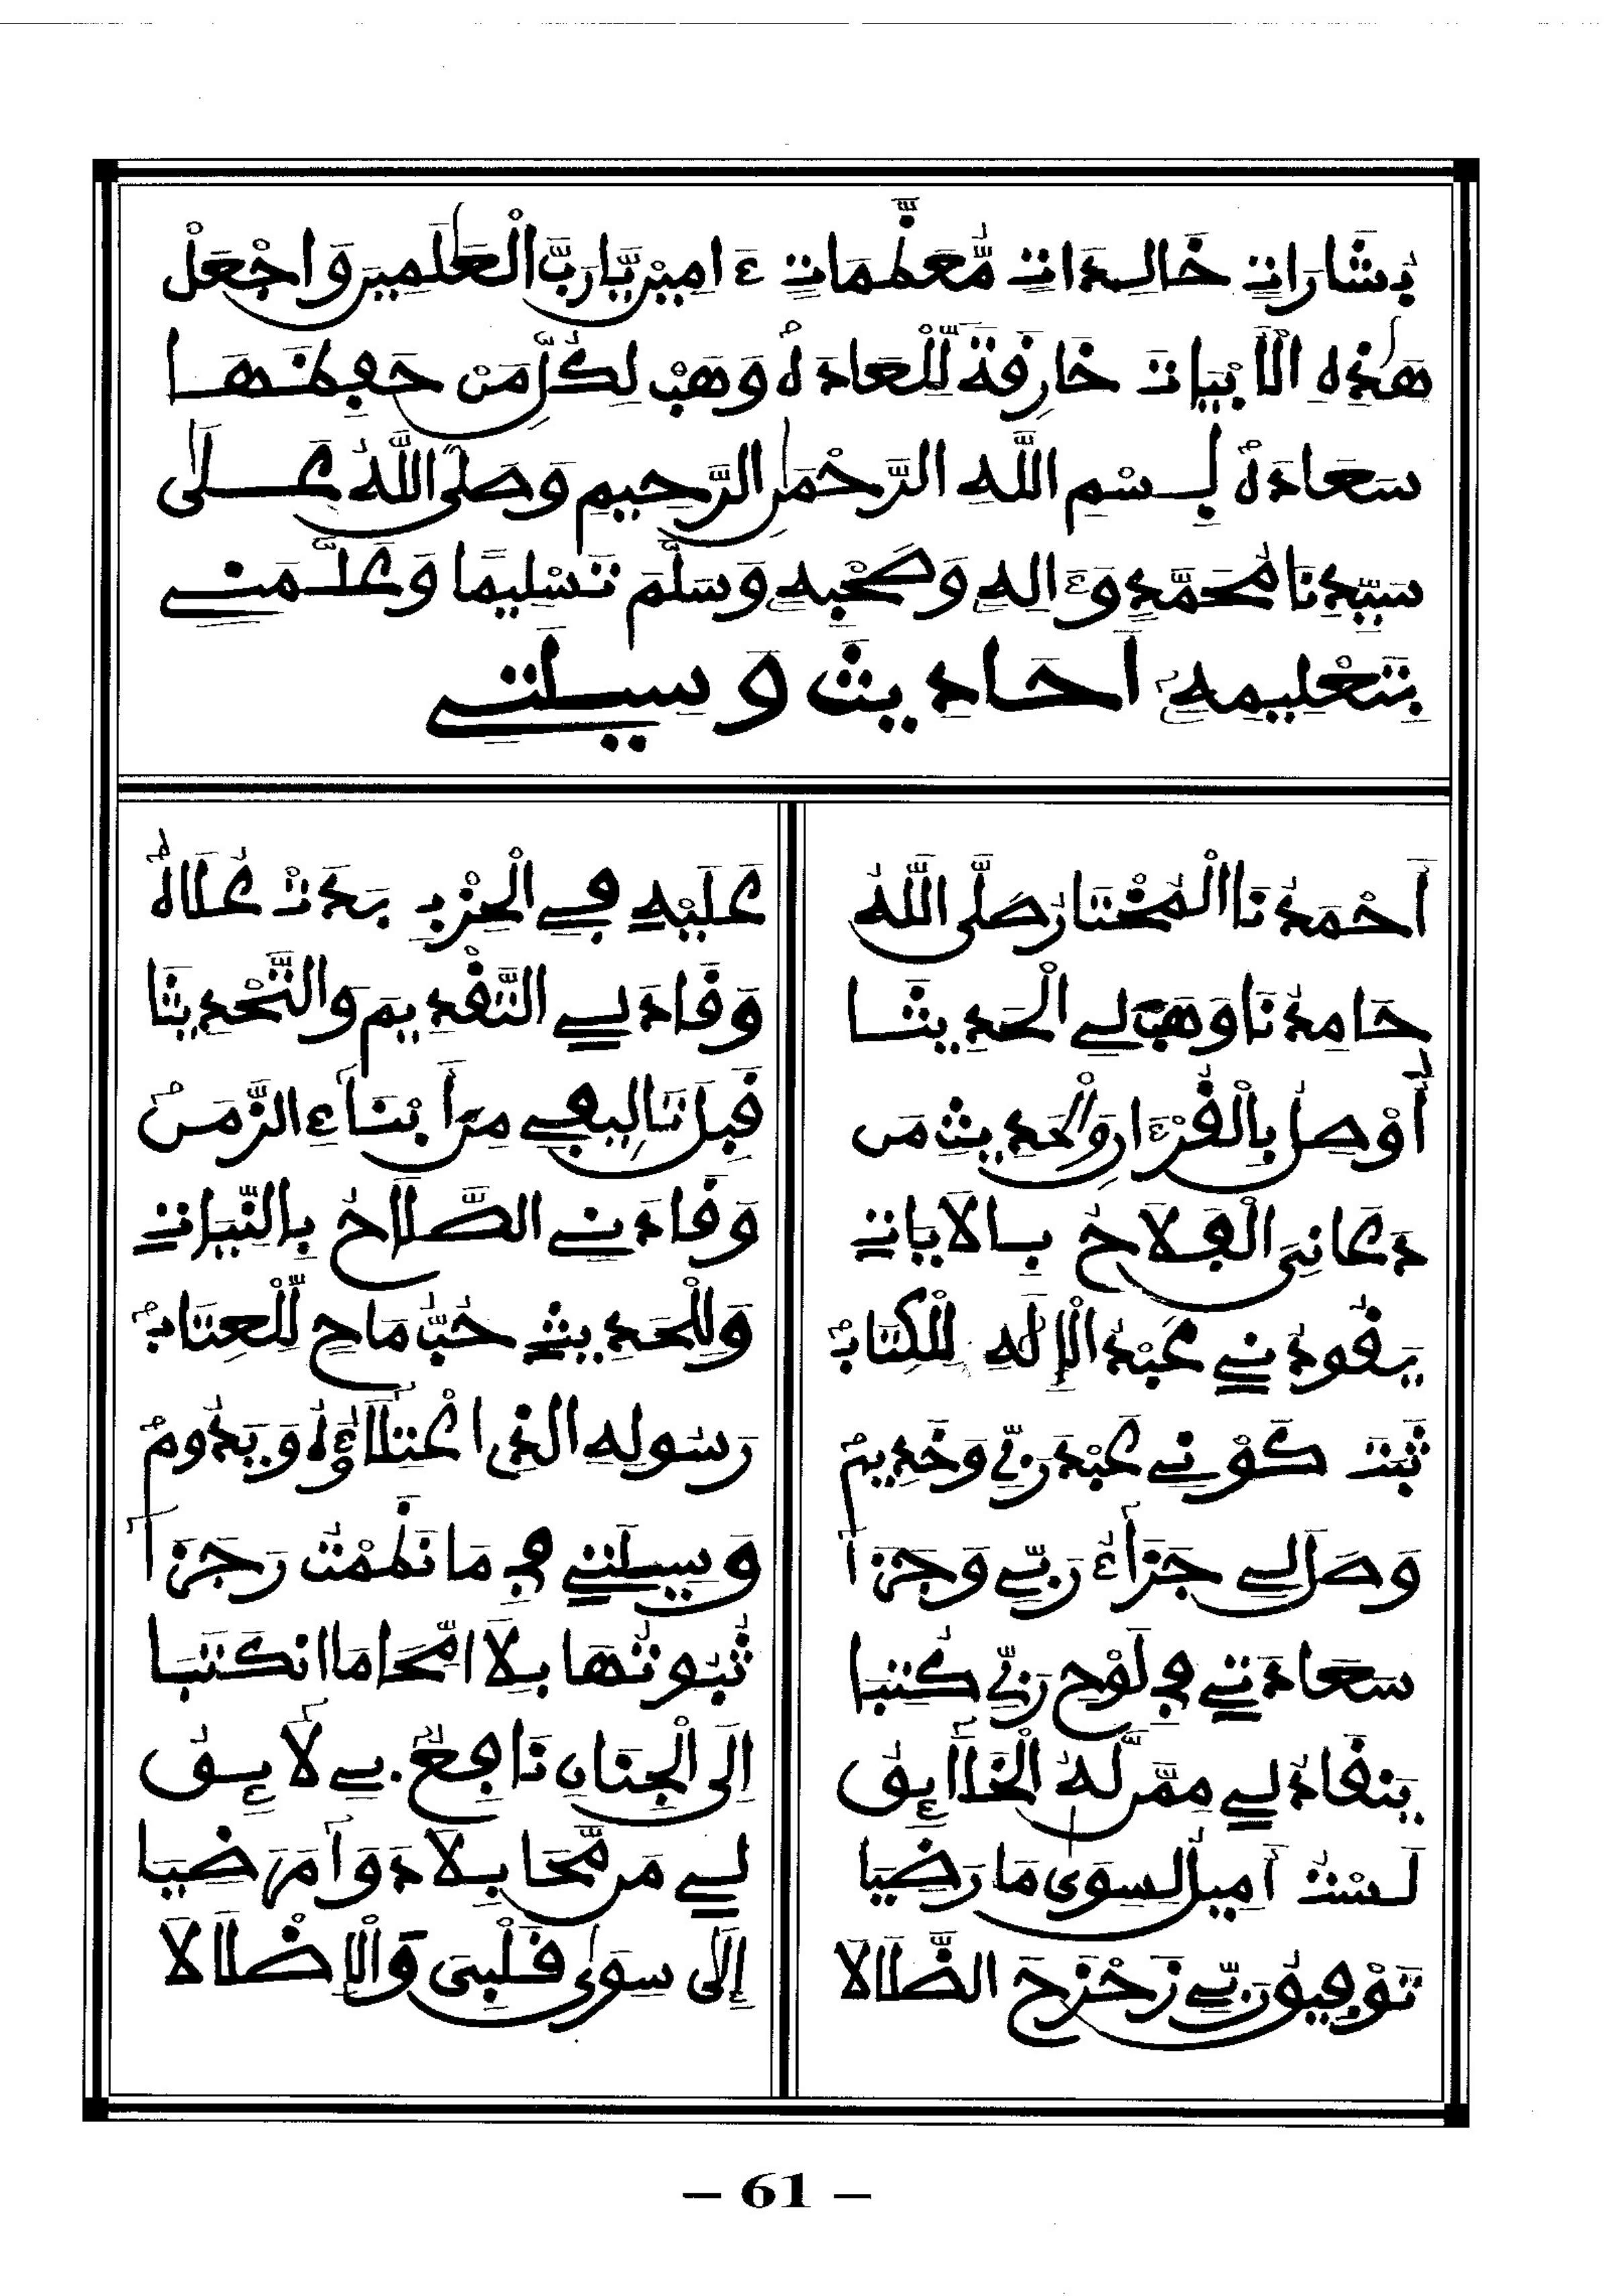 بِشَارَاتٍ خَالِدَاتٍ مُّعَظَّمَاتٍ ءَامِينَ يَّارَبَّ الْعَٰلَمِينَ وَاجْعَلْ
هَٰذِهِ الْأَبْيَاتَ خَارِقَةً لِّلْعَادَهْ وَهَبْ لِكُلِّ مَنْ حَفِظَهَا
سَعَادَهْ بِسْمِ اللَّهِ الرَّحْمَٰنِ الرَّحِيمِ وَصَلَّى اللَّهُ عَلَىٰ
سَيِّدِنَا مُحَمَّدٍ وَءَالِهِ وَصَحْبِهِ وَسَلَّمَ تَسْلِيمًا وَعَلَّمَنِي
بِتَعْلِيمِهِ أَحَادِيثَ وَسِيلَتِي
أَحْمَدُنَا الْمُخْتَارُ صَلَّى اللَّهُ عَلَيْهِ فِي الْحِزْبِ بَدَتْ عُلَاهُ
حَامِدُنَا وَهَبَ لِي الْحَدِيثَا وَقَادَ لِي التَّقْدِيمَ وَالتَّحْدِيثَا
أُوصِلُ بِالْقُرْءَانِ وَالْحَدِيثِ مَن قَبْلَ تَئَالِيفِي مِنَ أَبْنَاءِ الزَّمَنْ
دَعَانِيَ الْفَلَاحُ بِالْأيَاتِ وَقَادَنِي الصَّلَاحُ بِالنِّيَّاتِ
يَقُودُنِي عَبْدُ الْإِلَٰهِ لِلْكِتَابْ وَلِلْحَدِيثِ حُبُّ مَاحٍ لِّلْعِتَابْ
ثَبَتَ كَوْنِي عَبْدَ رَبِّي وَخَدِيمْ رَسُولِهِ الَّذِي اعْتِلَاؤُهُ وَيَدُومْ
وَصَلَ لِي جَزَاءُ رَبِّي وَجَزَا وَسِيلَتِي فِي مَا نَظَمْتُ رَجَزَا
سَعَادَتِي فِي لَوْحِ رَبِّي كُتِبَا ثُبُوتُهَا بِلَا امِّحَا مَا انكَتَبَا
يَنقَادُ لِي مِمَّن لَهُ الْخَلَائِقُ إِلَى الْجِنَانِ نَافِعٌ بِي لَائِقُ
لَسْتُ أَمِيلُ لِسِوَى مَا رَضِيَا لِي مَن مَّحَا بِلَا دَوَا مَرَضِيَا
تَوْفِيقُ رَبِّي زَحْزَحَ الضَّلَالَا إِلَى سِوَىٰ قَلْبِي وَالْإِضْلَالَا
– 61 –